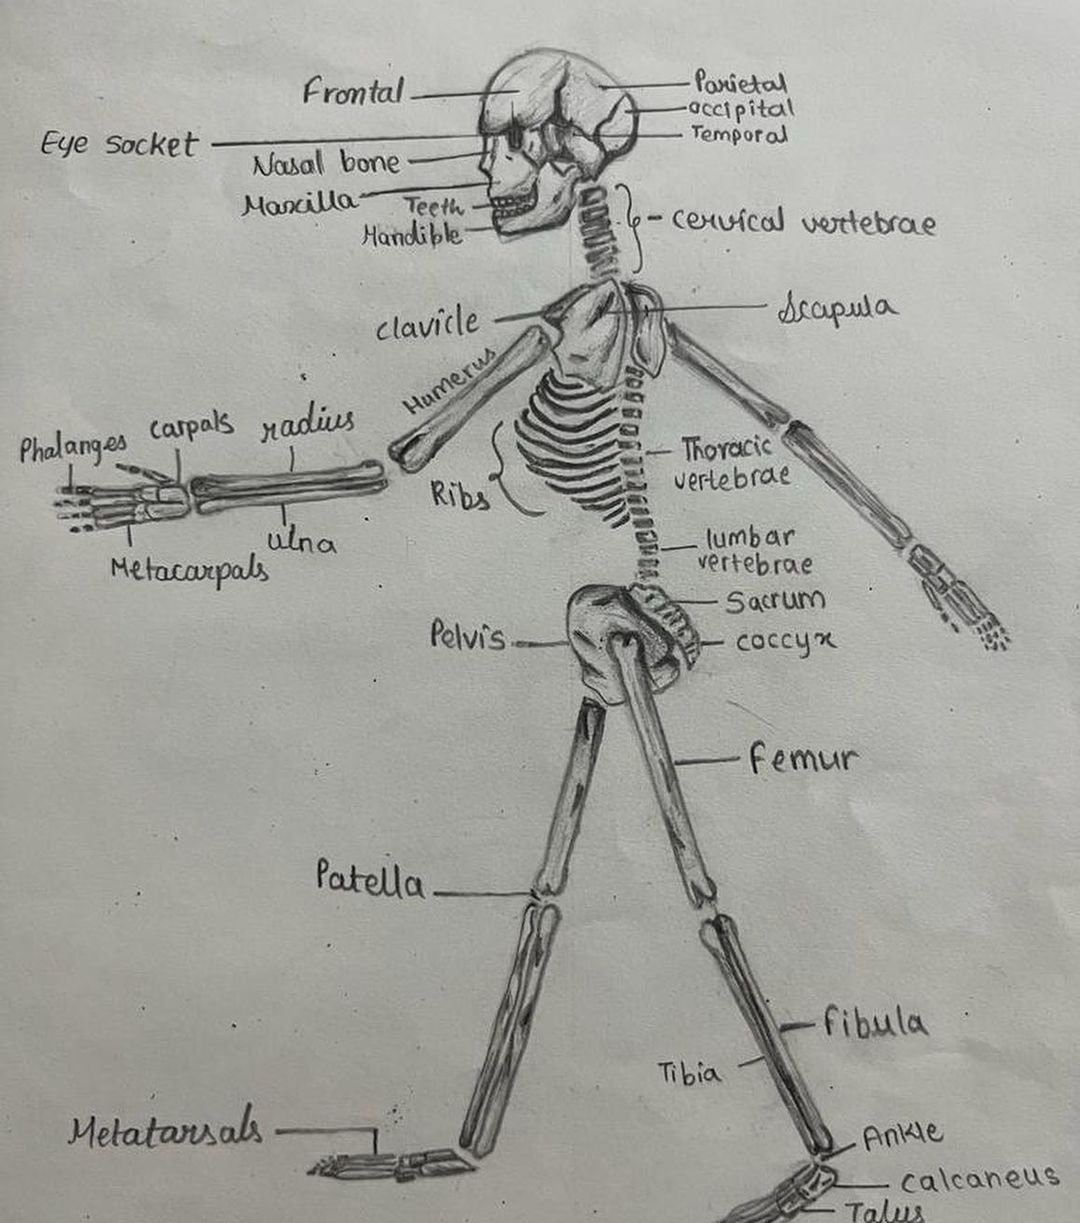 Frontal
Parietal
occipital
Temporal
Eye socket
Nasal bone
Maxilla
Teeth
Mandible
cervical vertebrae
clavicle
Scapula
Humerus
Phalanges
carpals
radius
Ribs
Thoracic
vertebrae
ulna
Metacarpals
lumbar
vertebrae
Sacrum
Pelvis
coccyx
Femur
Patella
Fibula
Tibia
Metatarsals
Ankle
calcaneus
Talus